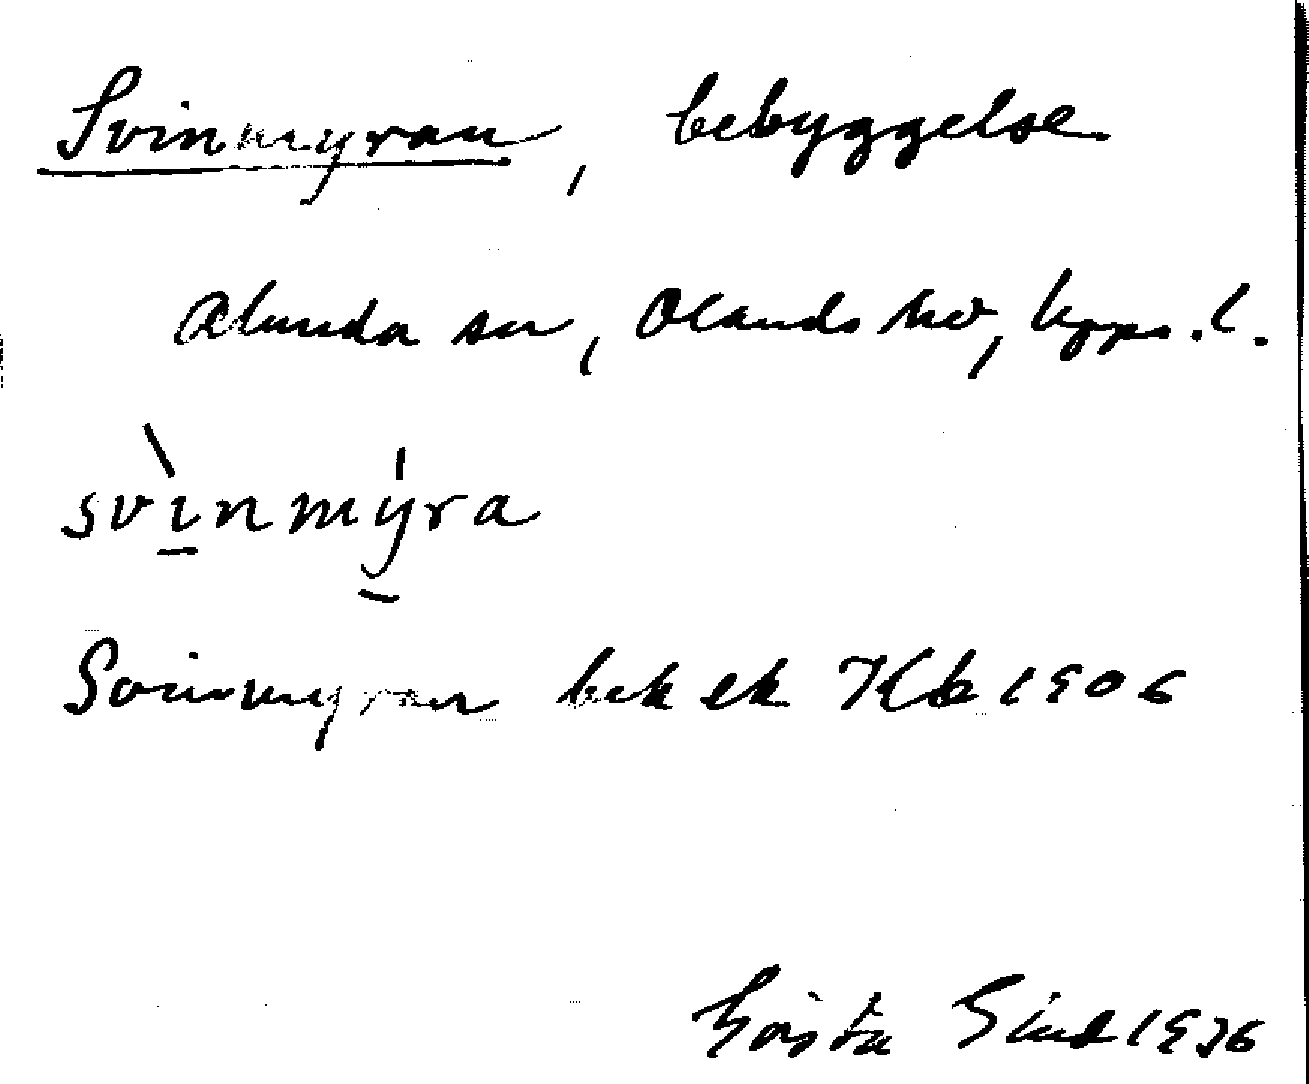 Svinmyran, bebyggelse
Alunda sn, Olands hd, Upps. l.
svìnmýra
Svinmyran bek ek Kb 1906
Gösta